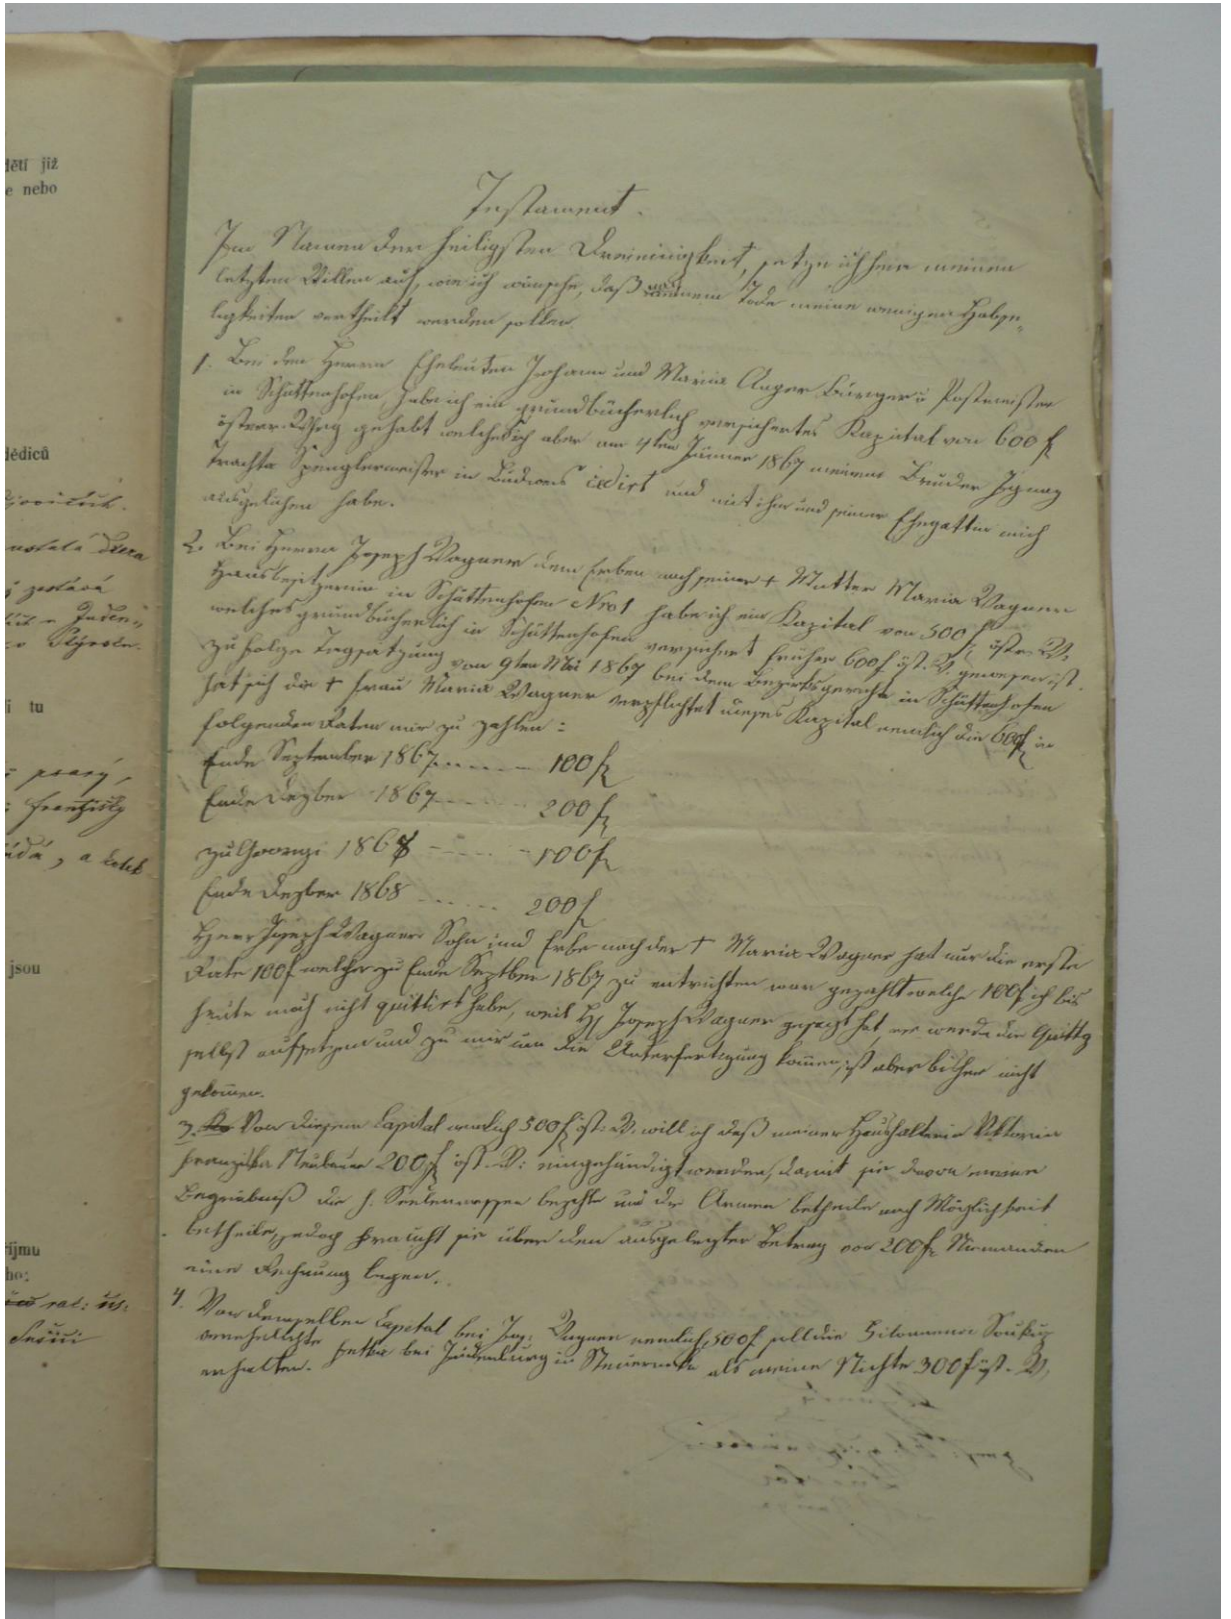 dětí již
e nebo
dědiců
í tu
jsou
říjmu
ho:
Testament.
Im Namen der heiligsten Dreieinigkeit, setze ich hier meinen
letzten Willen auf, wie ich wünsche, daß nach meinem Tode meine wenigen Habse-
ligkeiten vertheilt werden sollen.
1. Bei den Herrn Eheleuten Johann und Maria Anger Bürger u Postmeister
in Schüttenhofen habe ich ein grundbücherlich versichertes Kapital von 600 f
österr. Whg gehabt welches ich aber am 4ten Jänner 1867 meinem Bruder Ignaz
Trachta Spenglermeister in Budweis cedirt und mit ihm und seiner Ehegattin mich
ausgelichen habe.
2. Bei Herrn Joseph Wagner dem Erben nach seiner + Mutter Maria Wagner
Hausbesitzerin in Schüttenhofen Nro 1 habe ich ein Kapital von 500 f östr. W.
welches grundbücherlich in Schüttenhofen versichert früher 600 f öst. W. gewesen ist.
Zu folge Tagsatzung vom 9ten Mai 1867 bei dem Bezirksgericht in Schüttenhofen
hat sich die + Frau Maria Wagner verpflichtet dieses Kapital nemlich die 600 f in
folgenden Raten mir zu zahlen:
Ende September 1867 ...... 100 f
Ende Dezber 1867 ...... 200 f
zu Georgi 1868 ...... 100 f
Ende Dezber 1868 ...... 200 f
Herr Joseph Wagner Sohn und Erbe nach der + Maria Wagner hat nur die erste
Rate 100 f welche zu Ende Septber 1867 zu entrichten war gezahlt welche 100 f ich bis
heute noch nicht quittirt habe, weil H. Joseph Wagner gesagt hat, er werde die Quittg
selbst aufsetzen und zu mir um die Unterfertigung kommen, ist aber bisher nicht
gekommen.
3. Von diesem Capital nemlich 500 f öst. W. will ich daß meiner Haushälterin Viktoria
Franziska Neubauer 200 f öst. W: eingehändigt werden, damit sie davon meine
Begräbniß die h. Seelenmessen bezahle und die Armen betheile nach Möglichkeit
betheile, jedoch braucht sie über den ausgelegten Betrag von 200 f Niemanden
eine Rechnung legen.
4. Von demselben Capital bei Jos: Wagner nemlich 500 f soll die Filomena Soukup
verehelichte bei Judenburg in Steuermark als meine Nichte 300 f öst. W.
erhalten.